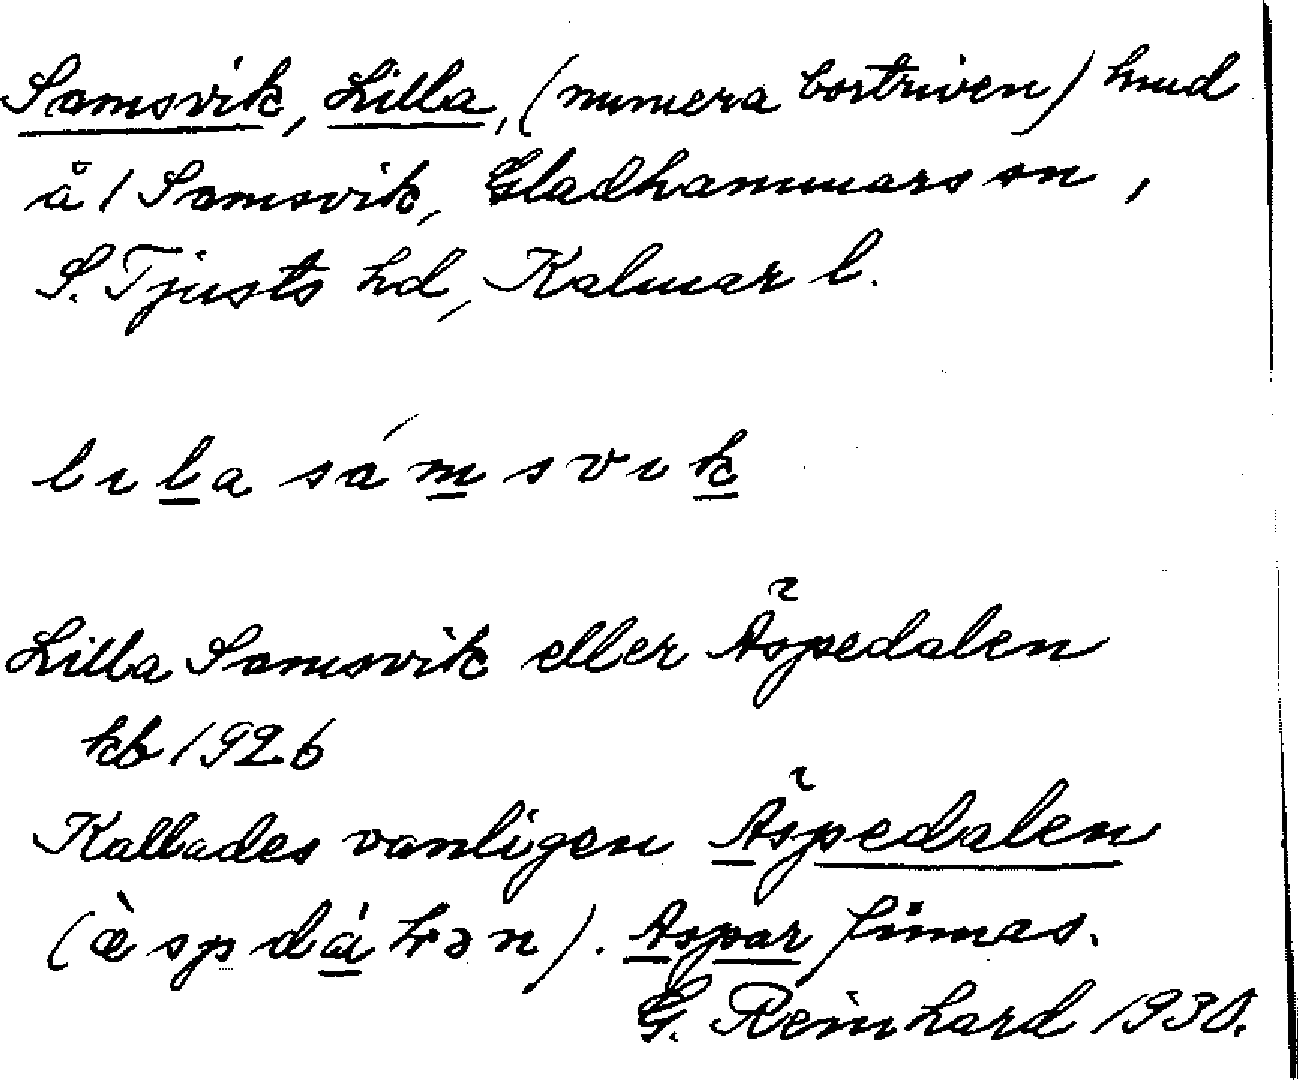 Samsvik, Lilla, (numera bortriven) hmd
å 1 Samsvik, Gladhammars sn,
S. Tjusts hd, Kalmar l.
lıla sámsvık
Lilla Samsvik eller Äspedalen
kb 1926
Kallades vanligen Äspedalen
(æ̀spdálən). Aspar finnas.
G. Reinhard 1930.